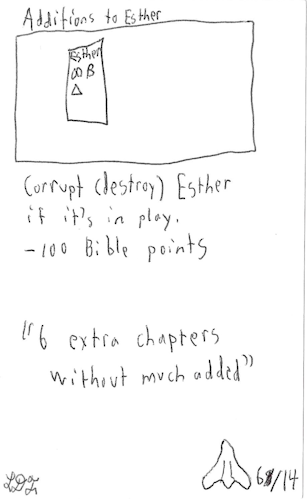 Additions to Esther
Esther
∞ B
△
Corrupt (destroy) Esther
if it's in play.
-100 Bible points
"6 extra chapters
without much added"
LDZ
/14